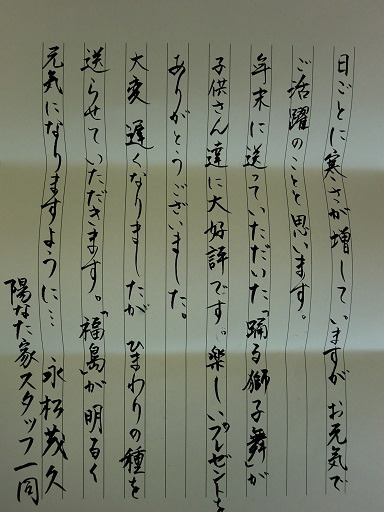 日ごとに寒さが増していますがお元気で
ご活躍のことと思います。
年末に送っていただいた「踊る獅子舞」が
子供さん達に大好評です。楽しいプレゼントを
ありがとうございました。
大変遅くなりましたがひまわりの種を
送らせていただきます。「福島」が明るく
元気になりますように… 永松茂久
陽なた家スタッフ一同